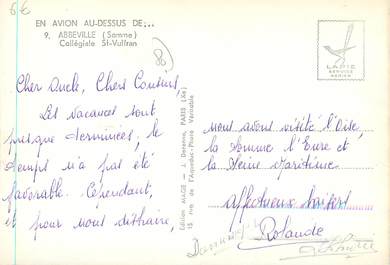 66
EN AVION AU-DESSUS DE...
9. ABBEVILLE (Somme)
Collégiale St-Vulfran
80
LAPIE
SERVICE
AERIEN
Cher Oncle, Chers Cousins,
Les vacances sont
presque terminées, le
temps n'a pas été
favorable. Cependant,
et pour nous distraire,
Edition ALIGE - J. Dezenne, PARIS (Xe)
15 rue de l'Aqueduc-Photo Véritable
nous avons visité l'Oise
la Somme l'Eure et
la Seine Maritime
affectueux baisers
Rolande